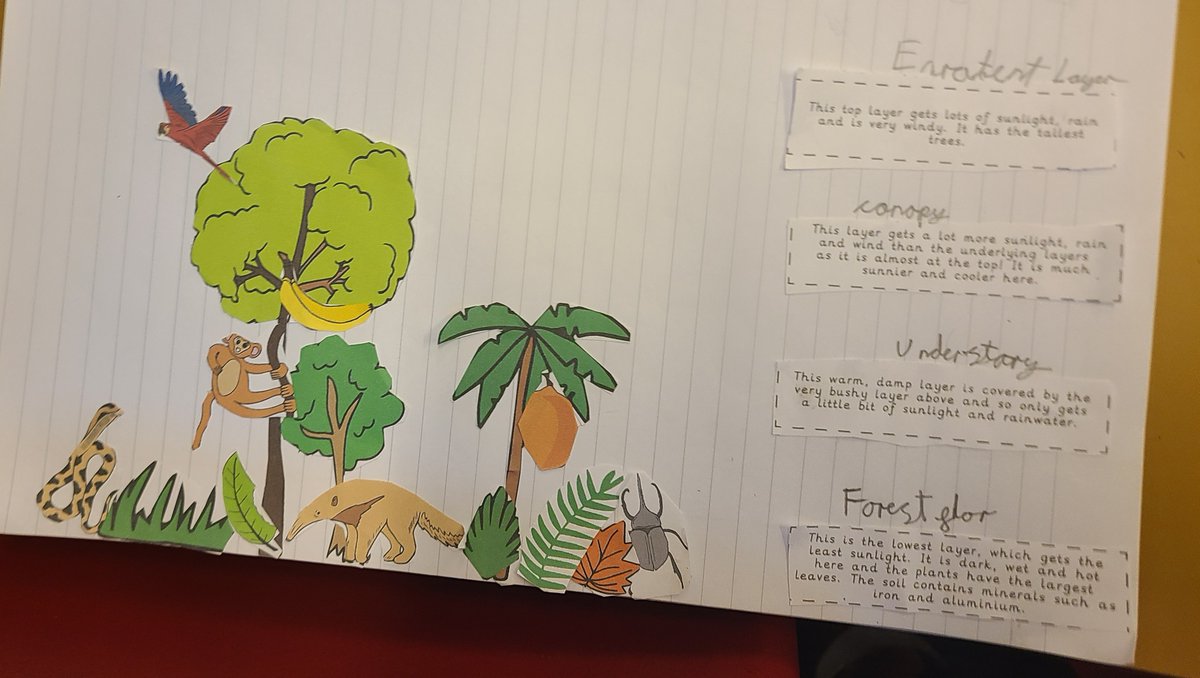 Enratent Layer
This top layer gets lots of sunlight, rain
and is very windy. It has the tallest
trees.
canopy
This layer gets a lot more sunlight, rain
and wind than the underlying layers
as it is almost at the top! It is much
sunnier and cooler here.
Understory
This warm, damp layer is covered by the
very bushy layer above and so only gets
a little bit of sunlight and rainwater.
Forest glor
This is the lowest layer, which gets the
least sunlight. It is dark, wet and hot
here and the plants have the largest
leaves. The soil contains minerals such as
iron and aluminium.